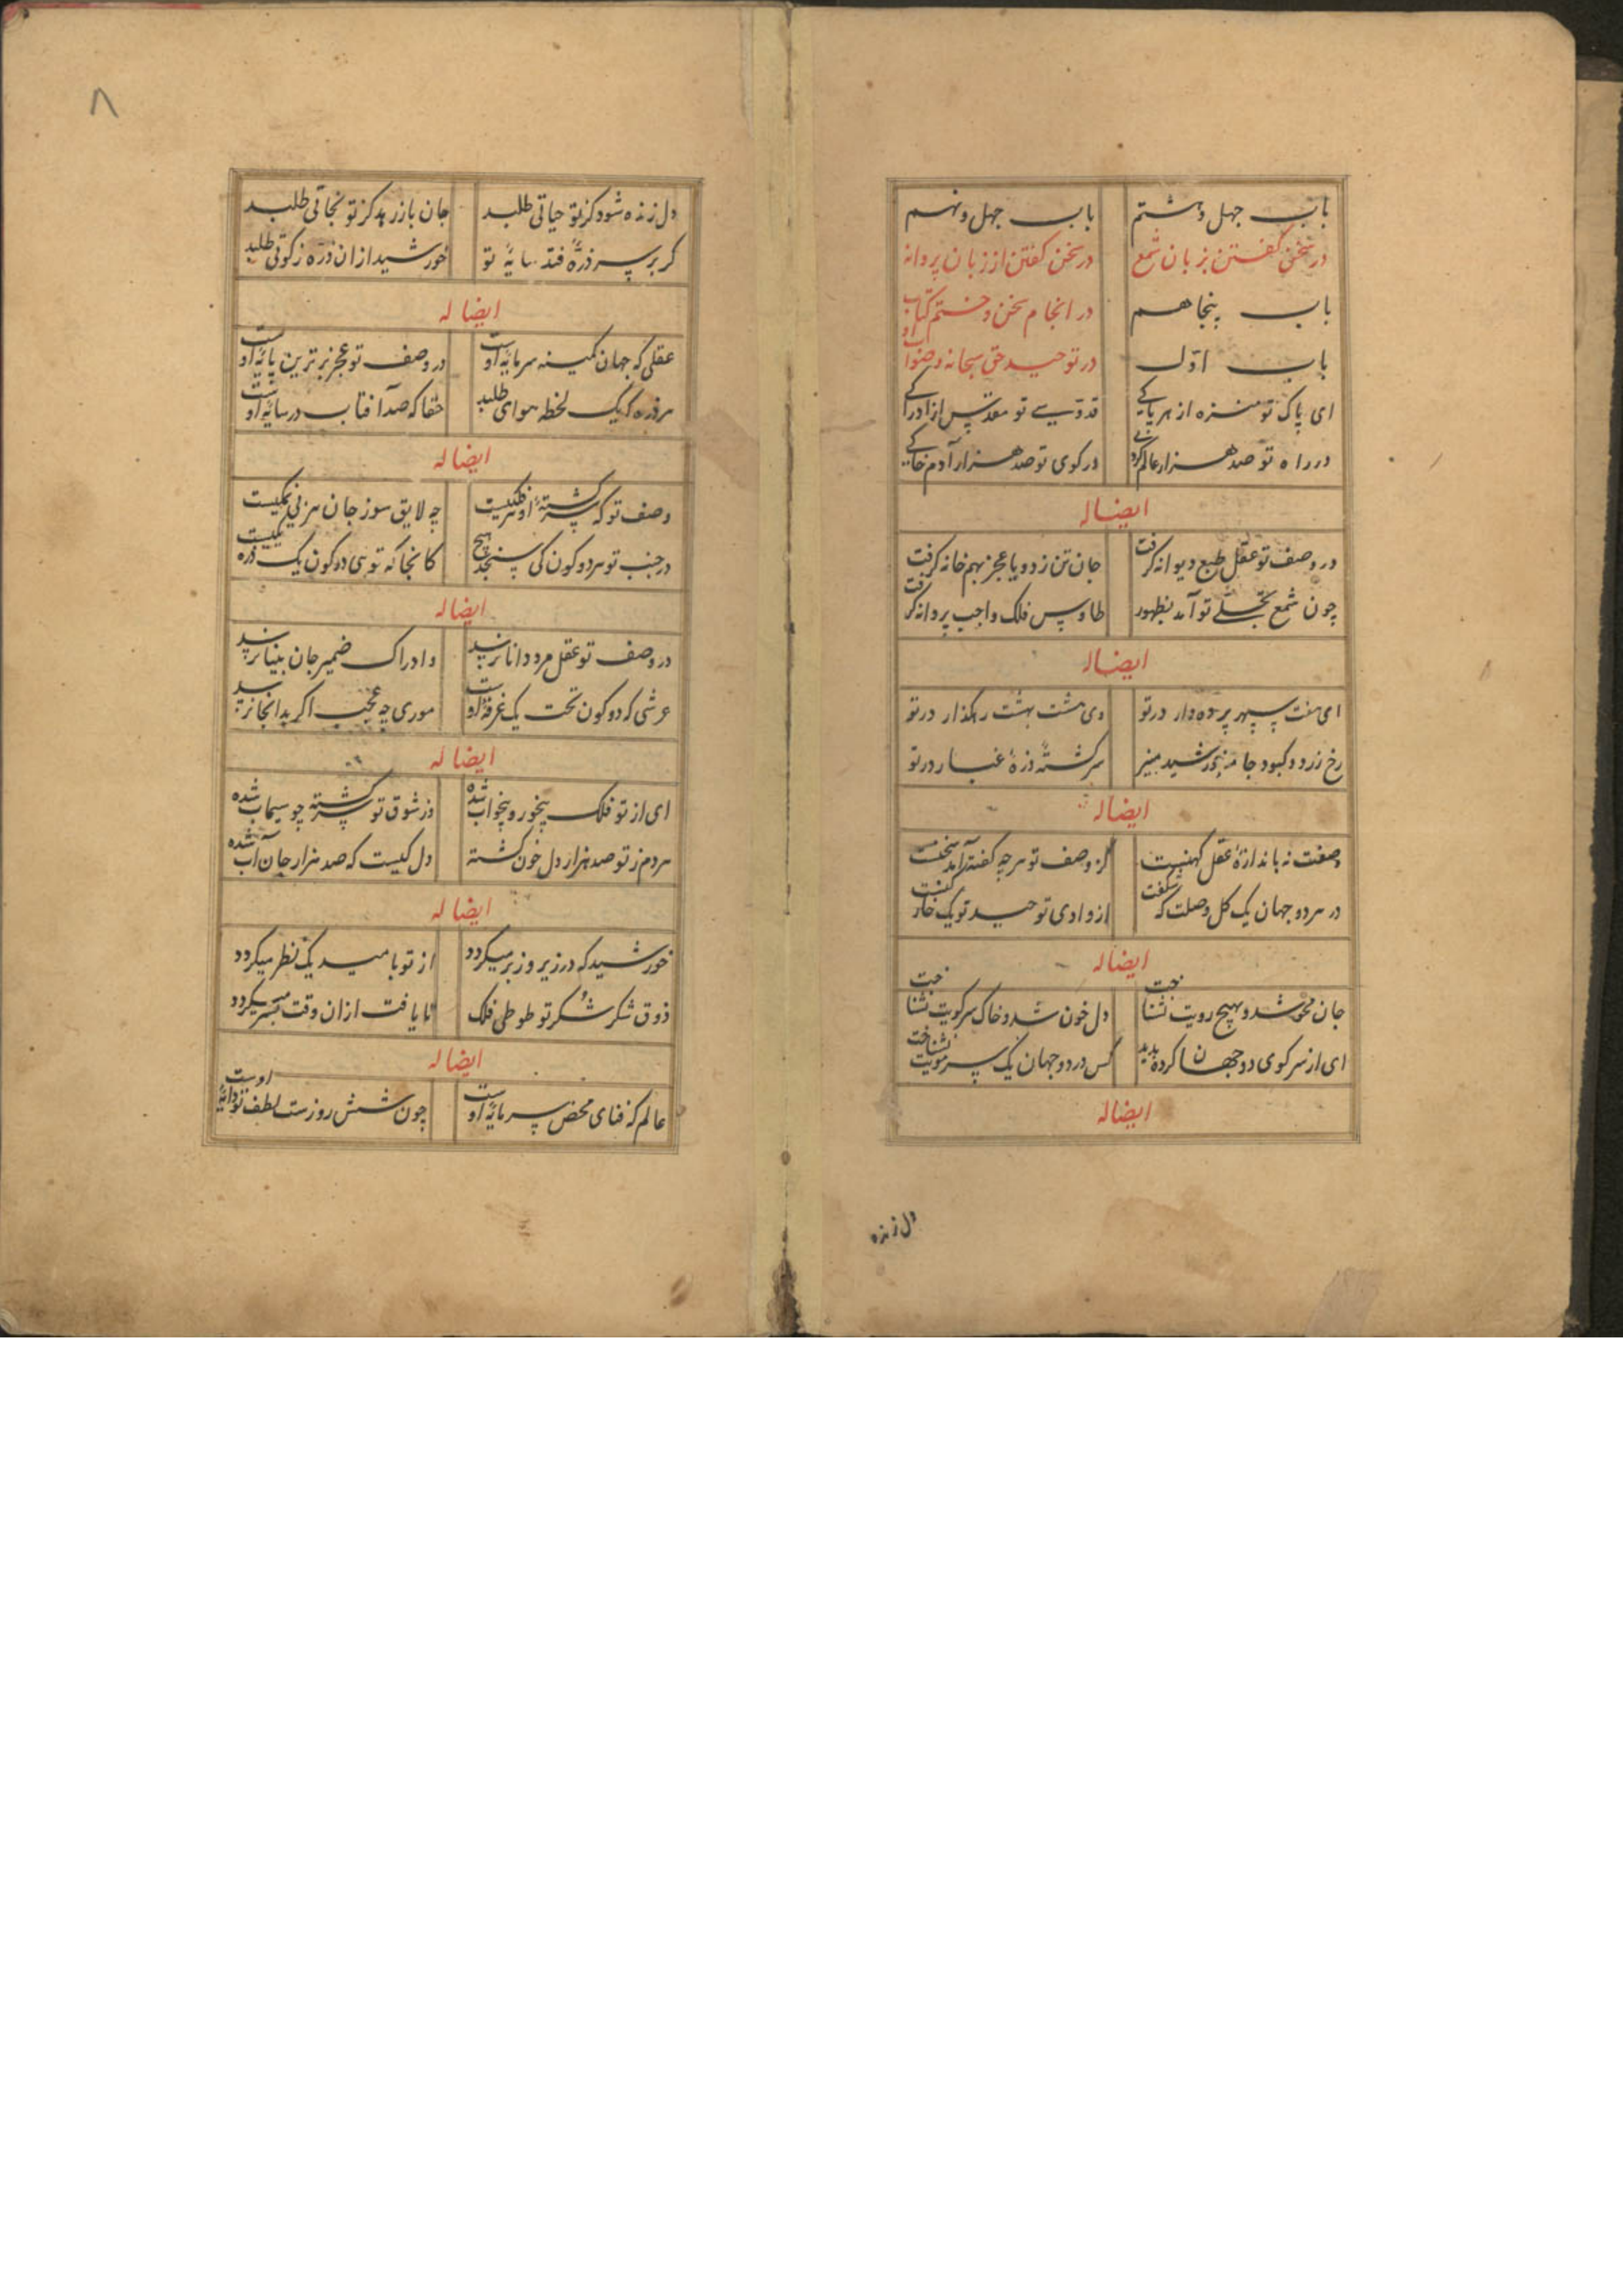 باب چهل و هشتم باب چهل و نهم
در سخن گفتن بزبان شمع در سخن گفتن از زبان پروانه
باب پنجاهم در انجام سخن و ختم کتاب
باب اوّل در توحید حق سبحانه و
ای پاک تو منزه از هر پاکی قدوسی تو مقدس از ادراکی
در راه تو صد هزار عالم گردی در کوی تو صد هزار آدم خاکی
ایضا له
در وصف تو عقل طبع دیوانه گرفت جان تن زد و با عجز بهم خانه گرفت
چون شمع تجلی تو آمد بظهور طاوس فلک واجب پروانه گرفت
ایضا له
ای هفت سپهر پرده دار در تو وی هشت بهشت رهگذار در تو
رخ زرد و کبود جامه خورشید منیر سرگشته ذرهٔ غبار در تو
ایضا له
وصفت نه باندازهٔ عقل کهنست کز وصف تو هر چه گفته آمد سخنست
در هر دو جهان یک گل وصلت که شکفت از وادی توحید تو یک خار
ایضا له
جان محو شد و بهیچ رویت نشناخت دل خون شد و خاک سر کویت نشناخت
ای از سر کوی دو جهان کرده پدید کس در دو جهان یک سر مویت نشناخت
ایضا له
دل زنده
۸
دل زنده شود کز تو حیاتی طلبد جان باز رهد کز تو نجاتی طلبد
گر بر سر ذرهٔ فتد سایهٔ تو خورشید از ان ذره زکوتی طلبد
ایضا له
عقلی که جهان کمینه سرمایهٔ اوست در وصف تو عجز برترین پایهٔ اوست
هر ذره که یک لحظه هوای طلبد حقا که صد آفتاب در سایهٔ اوست
ایضا له
وصف تو که سرگشتهٔ او هر فلکیست چه لایق سوز جان هر بی نمکیست
در جنب تو هر دو کون کی سنجد هیچ کانجا که توی دو کون یک ذره یکیست
ایضا له
در وصف تو عقل مرد دانا نرسید و ادراک ضمیر جان بینا نرسید
عرشی که دو کون تحت یک غرفهٔ اوست موری چه عجب اگر بدانجا نرسید
ایضا له
ای از تو فلک بیخور و بیخواب شده وز شوق تو سرگشته چو سیماب شده
هر دم ز تو صد هزار دل خون گشته دل کیست که صد هزار جان آب شده
ایضا له
خورشید که در زیر و زبر میگردد از تو بامید یک نظر میگردد
ذوق شکر شکر تو طوطی فلک تا یافت ازان وقت بسر میگردد
ایضا له
عالم که فنای محض سرمایهٔ اوست چون شش روزست لطف تو دایهٔ اوست